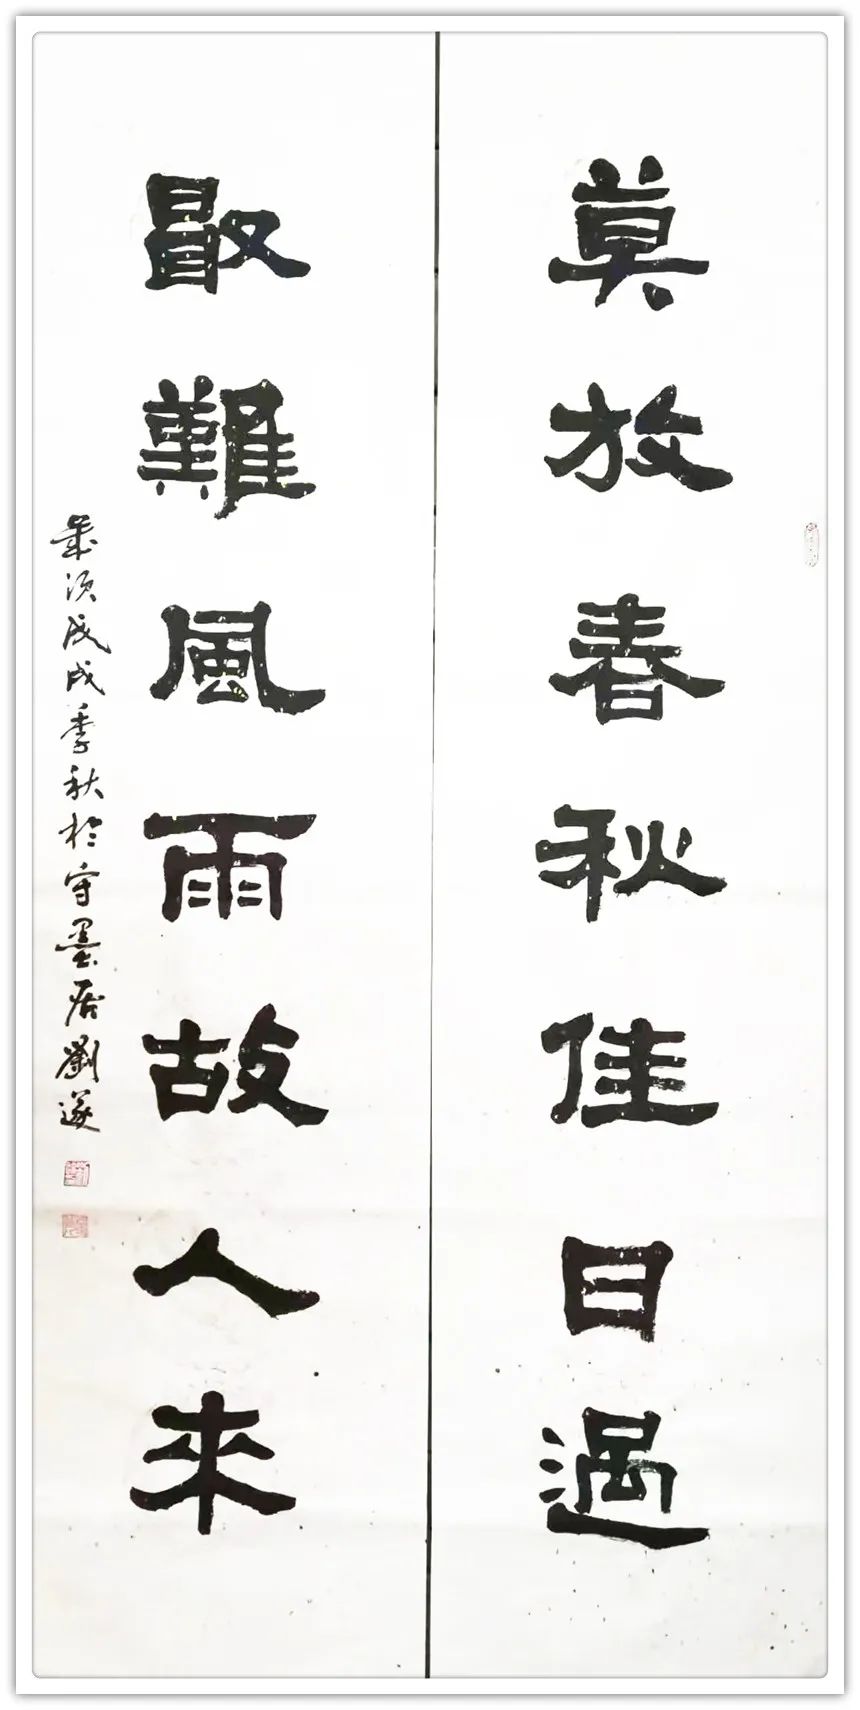 莫放春秋佳日過
最難風雨故人來
歲次戊戌季秋於守墨居劉遂